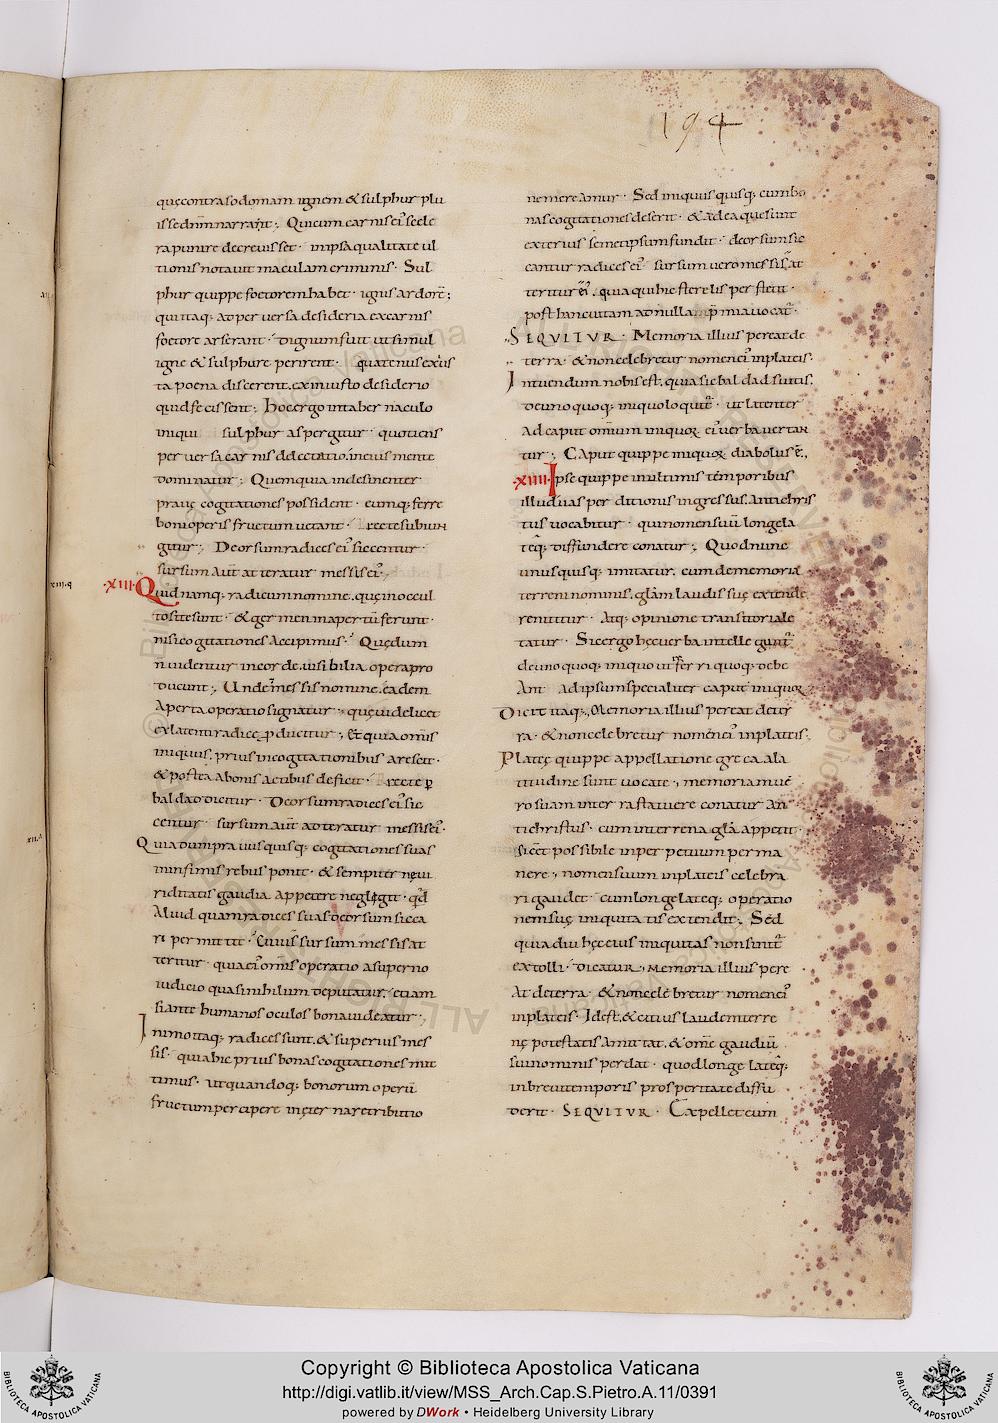 194
quęcontrasodomam ignem & sulphur plu
issednm̄narra&ur; Quicum carnis ei' scele
ra punire decreuisset · inipsa qualitate ul
tionis notauit maculam criminis · Sul
phur quippe foetorem habet · ignis ardorē;
qui itaq; ad peruersa desideria ex carnis
foetore arserant · dignum fuit ut simul
igne & sulphure perirent · quatenus ex iūs
ta poena discerent, ex iniusto desiderio
quid fecissent; Hoc ergo in tabernaculo
iniqui sulphur aspergitur · quotiens
peruersa carnis delectatio, in eius mente
dominatur; Quem quia indesinenter
prauę cogitationes possident · eumq; ferre
boni operis fructum uetant · recte subiun
gitur; Deorsum radices ei' siccentur ·
sursum aut̄ atteratur messis ei';
·XIII· Quid namq; radicum nomine, quę in occul
to sitę sunt · & germen in apertū ferunt ·
nisi cogitationes accipimus · Quę dum
n̄ uidentur in corde, uisibilia opera pro
ducunt; Unde & messis nomine, eadem
aperta operatio signatur; quę uidelicet
ex latenti radice ꝓducitur; Et quia om̄is
iniquus, prius in cogitationibus arescit ·
& postea a bonis actibus deficit · recte ꝑ
baldad dicitur · Deorsum radices ei' sic
centur · sursum aut̄ adteratur messis ei' ·
Quia dum prauus quisq; cogitationes suas
in infimis rebus ponit · & sempiternę ui
riditatis gaudia appetere neglegit · qd̄
aliud quam radices suas deorsum sicca
ri permittit · Cuius sursum messis at
teritur · quia ei' om̄is operatio a superno
iudicio quasi nihilum deputatur, etiam
si ante humanos oculos bona uideatur;
In imo itaq; radices sunt, & superius mes
sis · quia hic prius bonas cogitationes mit
timus · ut quandoq; bonorum operū
fructum percipere in ęterna retributio
ne mereamur · Sed iniquus quisq; cum bo
nas cogitationes deserit · & ad ea quę sunt
exterius semetipsum fundit · deorsum sic
cantur radices ei' · sursum uero messis at
teritur ei', quia qui hic sterelis perstetit ·
post hanc uitam ad nulla p̄mia uocat̄ ·
SEQUITUR · Memoria illius pereat de
terra · & non celebretur nomen ei' in plateis ·
Intuendum nobis est, quia sic baldad suitis,
de uno quoq; iniquo loquit̄ · ut latenter
ad caput omnium iniquoꝝ ei' uerba uertan
tur; Caput quippe iniquoꝝ diabolus ē,
·XIIII· Ipse quippe in ultimis temporibus
illud uas perditionis ingressus, antichris
tus uocabitur · qui nomen suū longe la
teq; diffundere conatur; Quod nunc
unusquisq; imitatur, cum de memoria
terreni nominis, glām laudis suę extende
re nititur · Atq; opinione transitoria lę
tatur · Sic ergo hęc uerba intellegunt̄
de uno quoq; iniquo ut referri quoq; debe
ant ad ipsum specialiter caput iniquoꝝ
Dicit itaq;, Memoria illius pereat de ter
ra · & non celebretur nomen ei' in plateis;
Plateę quippe appellatione greca a la
titudine sunt uocate; memoriam uē
ro suam inter ra statuere conatur an
tichristus · cum in terrena glā appetit ·
si c̄& possibile in perpetuum perma
nere; nomen suum in plateis celebra
ri gaudet · cum longe lateq; operatio
nem suę iniquitatis extendit; Sed
quia diu hęc eius iniquitas non sinit̄
extolli · dicatur; Memoria illius pere
at de terra · & non celebretur nomen ei'
in plateis · Idest, & citius laudem terre
nę potestatis amittat, & omē gaudiū
sui nominis perdat · quod longe lateq;
in breui temporis prosperitate diffu
derit · SEQUITUR · Expellet eum
xiii·q
Copyright © Biblioteca Apostolica Vaticana
http://digi.vatlib.it/view/MSS_Arch.Cap.S.Pietro.A.11/0391
powered by DWork • Heidelberg University Library
BIBLIOTECA APOSTOLICA VATICANA
BIBLIOTECA APOSTOLICA VATICANA